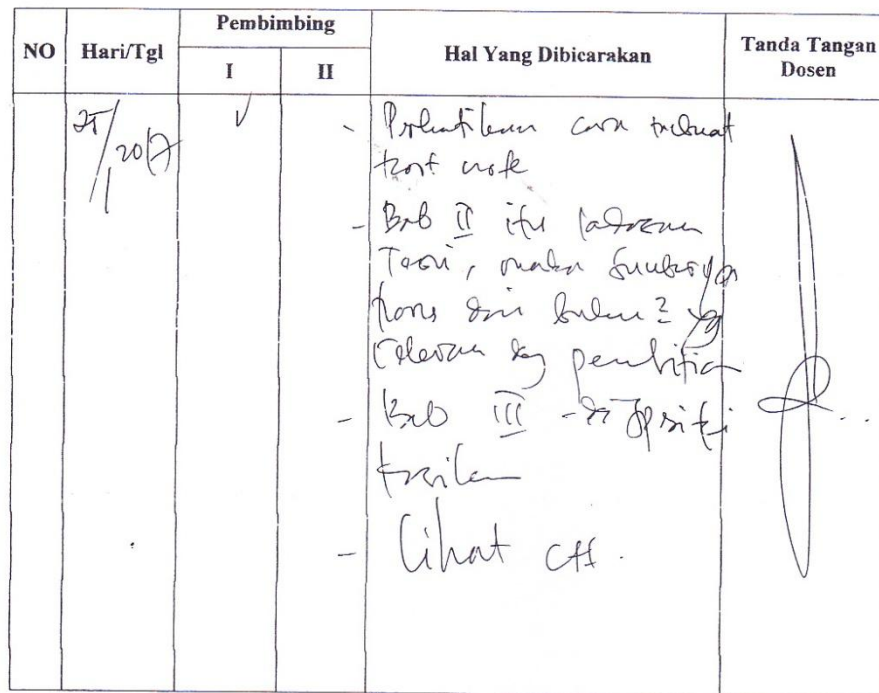 NO Hari/Tgl Pembimbing Hal Yang Dibicarakan Tanda Tangan Dosen
I II
25/1 2017 √ - Perhatikan cara membuat
foot note
- Bab II itu landasan
Teori, maka sumbernya
harus dari buku2 yg
relevan dg penelitian
- Bab III -
- Lihat